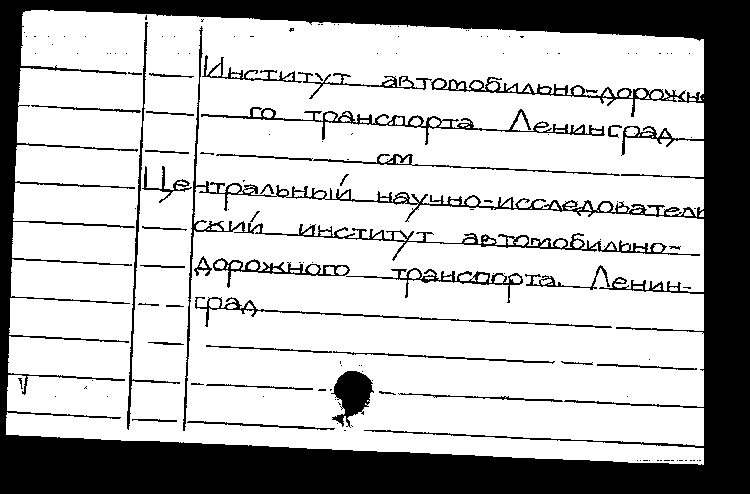 Институт автомобильно-дорожно
го транспорта. Ленинград
см.
Центральный научно-исследователь
ский институт автомобильно-
дорожного транспорта. Ленин-
град.